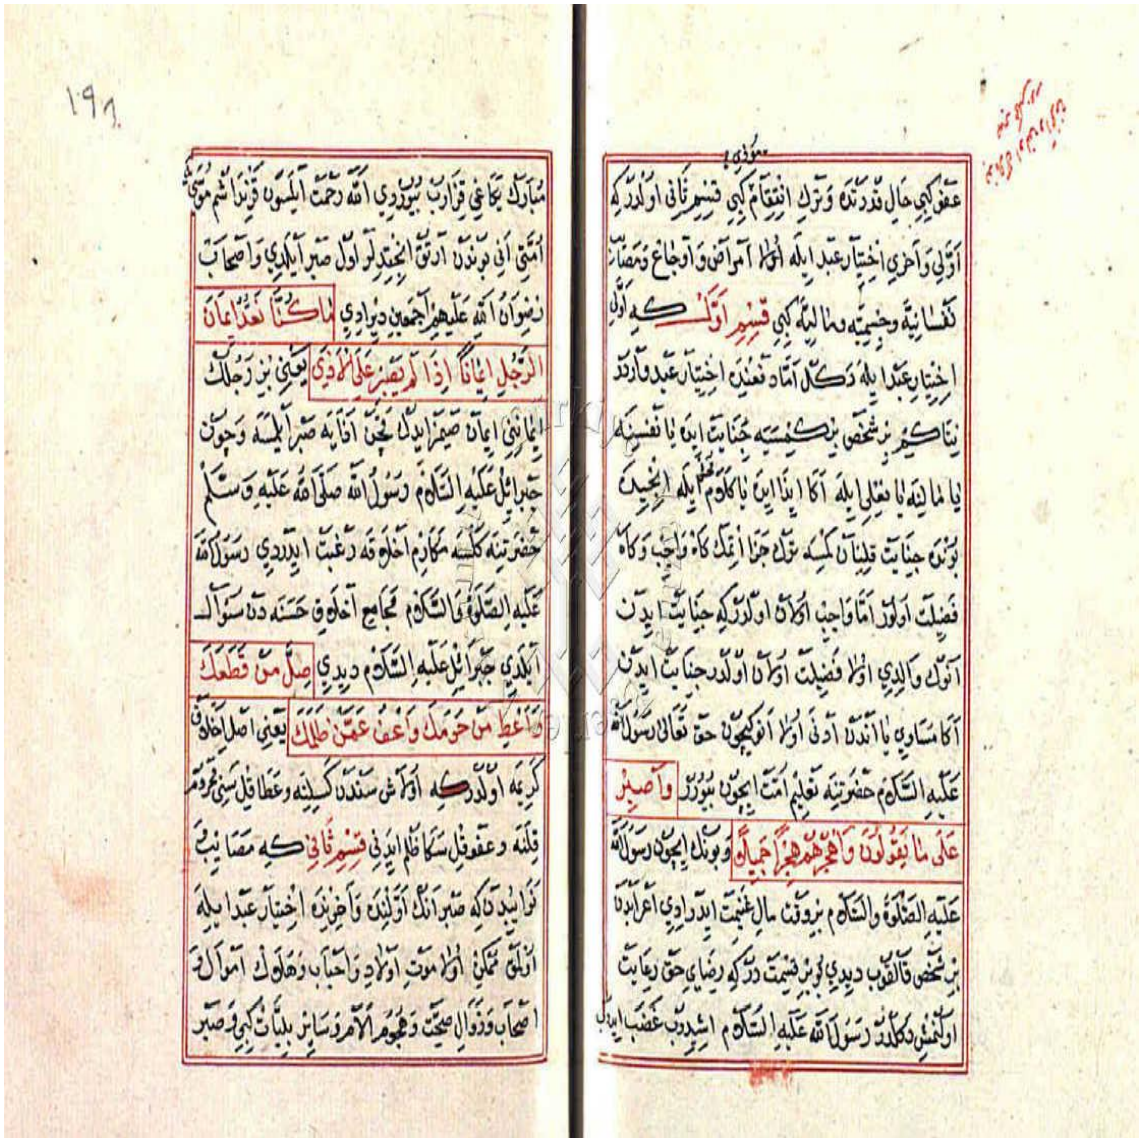 عفو كبي حال قدرتده و ترك انتقام كبي قسم ثاني اولدر كه
اولي و آخري اختيار عبد ايله اولا امراض و اوجاع و مصائب
نفسانيه و جسميه و ماليه كبي قسم اول كه اولي
اختيار عبد ايله دكل اما دفعنده اختيار عبد واردر
نيتاكيم بر شخص بر كمسيه جنايت ايده يا نفسينه
يا مالينه يا فعلى ايله اكا ايذا ايده يا كلام ايله انجيده
بونده جنايت قلينان كمسه ترك جزا اتمك كاه واجب و كاه
فضيلت اولور اما واجب اولان اولدر كه جنايت ايدن
آنوك والدي اولا فضيلت اولان اولدر جنايت ايدن
اكا مساوي يا اندن ادنى اولا انوكيچون حق تعالى رسول الله
عليه السلام حضرتينه تعليم امت ايچون بيورر واصبر
على ما يقولون واهجرهم هجرا جميلا و بونك ايچون رسول الله
عليه الصلوة والسلام بر وقت مال غنيمت ايدرادي اعرابدن
بر شخص قالقوب ديدي بو بر قسمت در كه رضاي حق رعايت
اولنمش دكلدر رسول الله عليه السلام اشيدوب غضب ايدوب
١٩٨
مبارك يكاغي قزارب بيوردي الله رحمت ايلسون قرنداشم موسى
امتي اني بوندن ارتق انجتديلر اول صبر ايلدي و اصحاب
رضوان الله عليهم اجمعين ديرادي ما كنا نعد ايمان
الرجل ايمانا اذا لم يصبر على الاذى يعني بر رجلك
ايماننى ايمان صيمزايدك قچن اذايه صبر ايلمسه و چون
جبرائل عليه السلام رسول الله صلى الله عليه وسلم
حضرتينه كلسه مكارم اخلاقه رغبت ايدردي رسول الله
عليه الصلوة والسلام مجامع اخلاق حسنه دن سؤال
ايلدي جبرائل عليه السلام ديدي صل من قطعك
واعط من حرمك واعف عمن ظلمك يعني اصل اخلاق
كريمه اولدر كه اولاش سندن كسيلنه و عطا قل سني محروم
قلنه و عفو قل سكا ظلم ايدني قسم ثاني كه مصائب
نوائبدن كه صبر انك اولنده و آخرنده اختيار عبد ايله
اولمق ممكن اولا موت اولاد و احباب و هلاك اموال و
اصحاب و زوال صحت و هجوم الآم و سائر بليات كبي و صبر